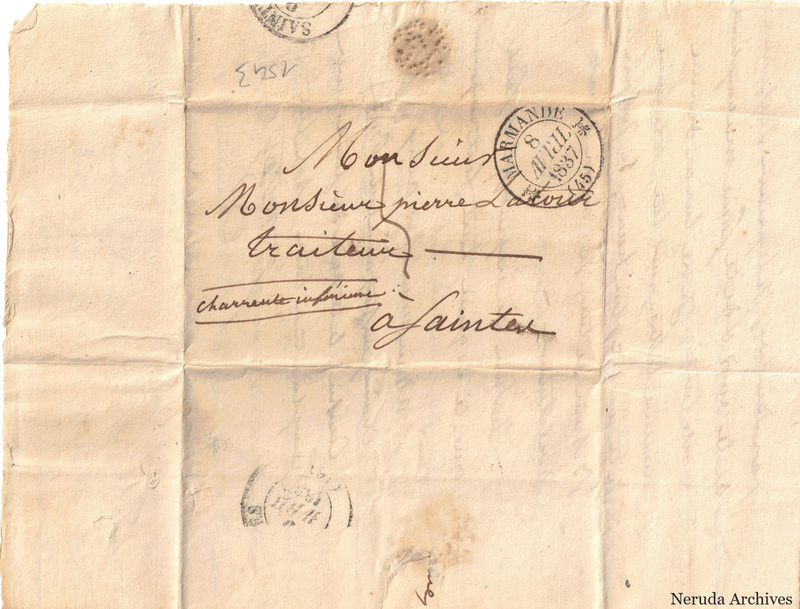 SAINT
1543
MARMANDE
8
AVRIL
1837
(45)
Monsieur
Monsieur pierre Latour
traiteur
charrente inférieure
à Saintes
AVRIL
Neruda Archives